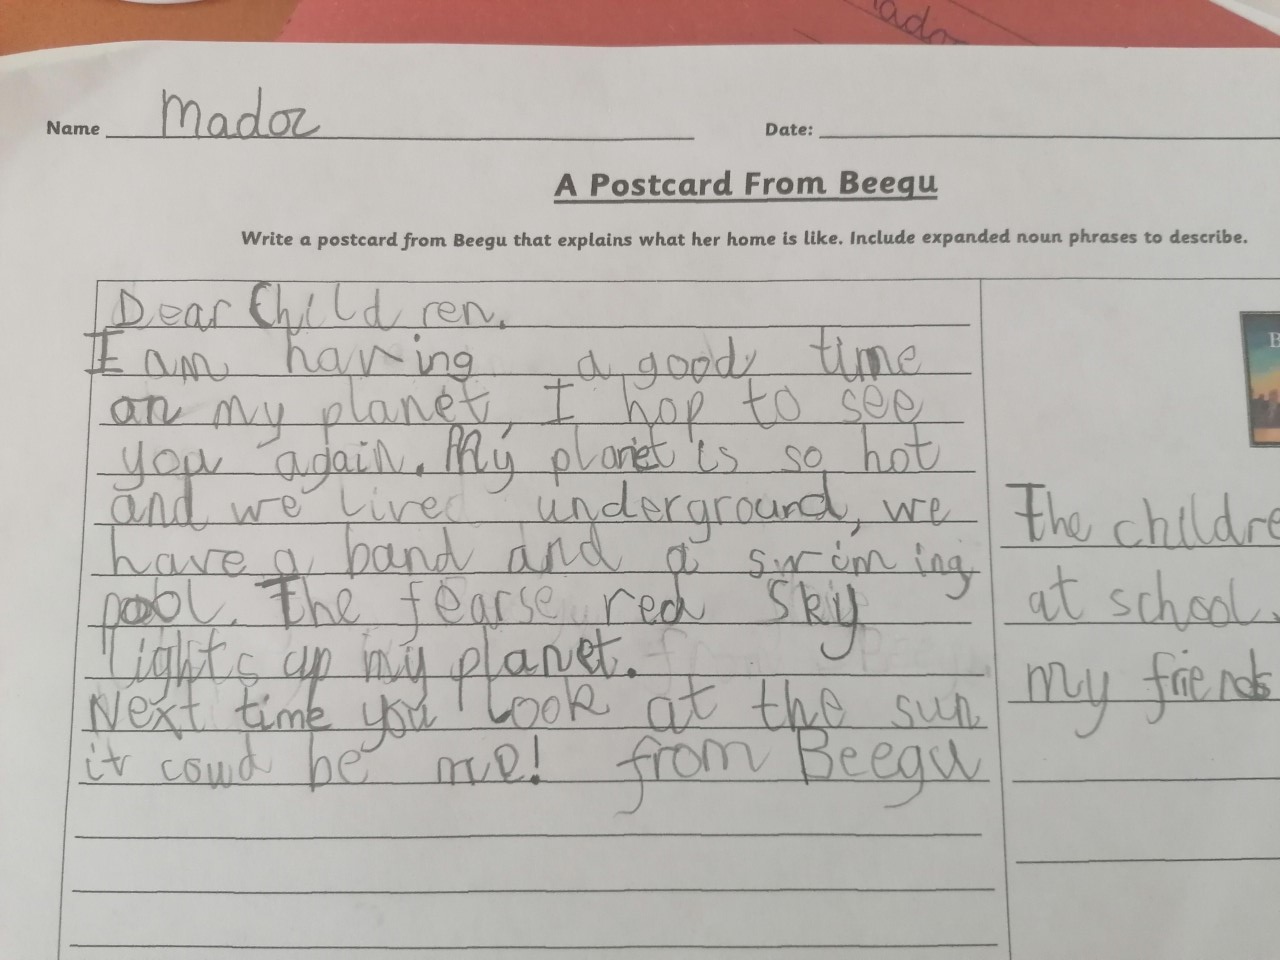 mador
Name Madoc
Date:
A Postcard From Beegu
Write a postcard from Beegu that explains what her home is like. Include expanded noun phrases to describe.
Dear Children.
I am having a good time
on my planet, I hop to see
you again. My planet is so hot
and we lived underground, we
have a band and a swiming
pool. The fearse red sky
lights up my planet.
Next time you look at the sun
it coud be me! from Beegu
B
The childre
at school.
my friends